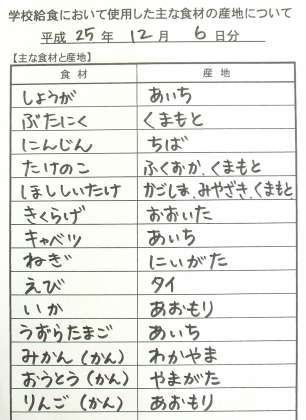 学校給食において使用した主な食材の産地について
平成 25 年 12 月 6 日分
【主な食材と産地】
食材 産地
しょうが あいち
ぶたにく くまもと
にんじん ちば
たけのこ ふくおか、くまもと
ほししいたけ かごしま、みやざき、くまもと
きくらげ おおいた
キャベツ あいち
ねぎ にいがた
えび タイ
いか あおもり
うずらたまご あいち
みかん（かん） わかやま
おうとう（かん） やまがた
りんご（かん） あおもり